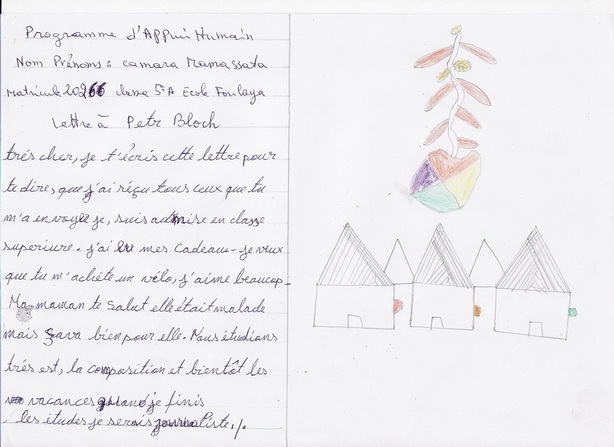 Programme d'Appui Humain
Nom Prénoms : camara Mamassata
Matricule 20266 classe 5e A Ecole Foulaya
Lettre à Petr Bloch
trés cher, je t'écris cette lettre pour
te dire, que j'ai réçu tous ceux que tu
m'a envoyée je, suis admise en classe
superiure. j'ai lu mes cadeau - je veux
que tu m'achéte un vélo, j'aime beaucop -
Ma maman te salut elle était malade
mais Sava bien pour elle. Nous étudions
trés est, la composition et bientôt les
vacances quand je finis
les études je serais journaliste./.